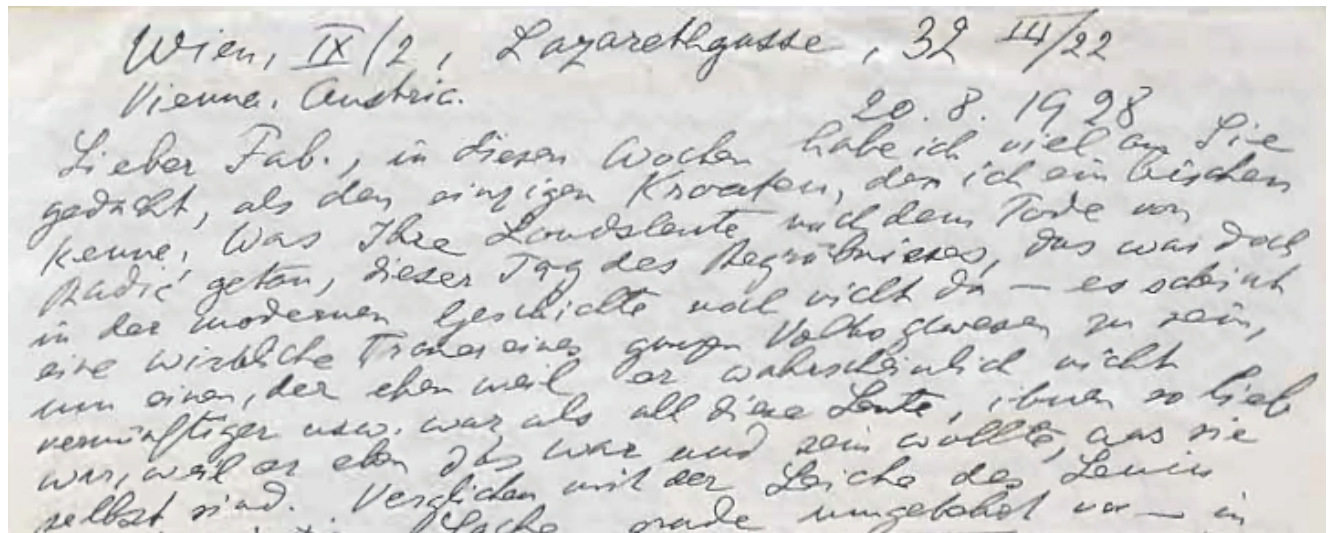 Wien, IX/2, Lazarethgasse, 32 III/22
Vienne. Austria.
20. 8. 1928
Lieber Fab., in diesen Wochen habe ich viel an Sie
gedacht, als den einzigen Kroaten, den ich ein bischen
kenne, Was Ihre Landsleute nach dem Tode von
Radić getan, dieser Tag des Begräbnisses, das war doch
in der modernen Geschichte noch nicht da — es scheint
eine wirkliche Trauer eines ganzen Volks gewesen zu sein,
um einen, der eben weil er wahrscheinlich nicht
vernünftiger usw. war als all diese Leute, ihnen so lieb
war, weil er eben das war und sein wollte, was sie
selbst sind. Verglichen mit der Leiche des Lenin
Sache grade umgekehrt vor — in